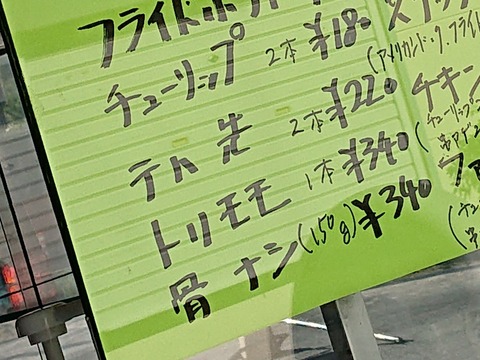 フライドポテト
チューリップ 2本 ¥180
テバ先 2本 ¥220
トリモモ 1本 ¥340
骨ナシ(150g) ¥340
(アメリカンドック.フライド
チキン
(チューリップ